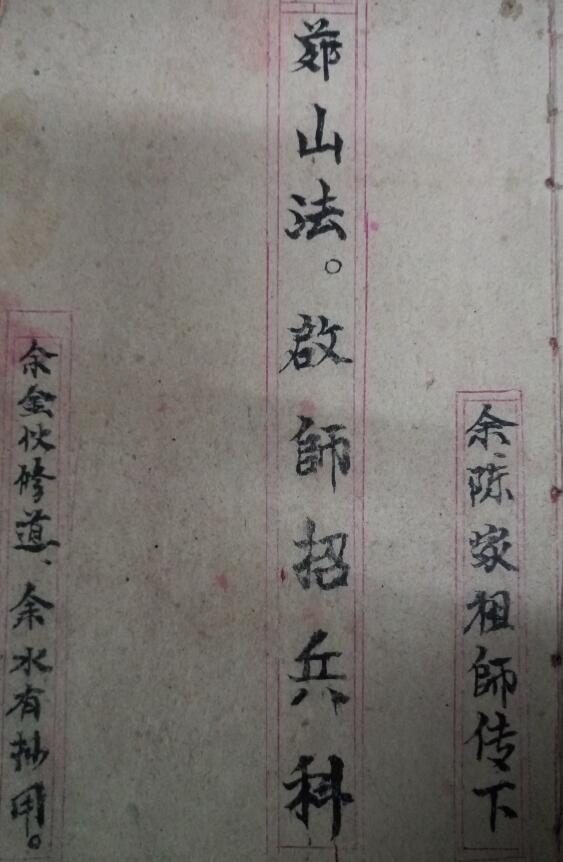 余、陈家祖師传下
茆山法。啟師招兵科
余金伙修道、余水有抄用。